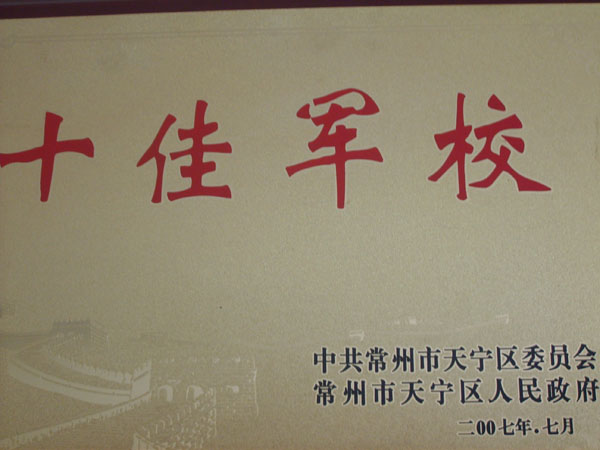 十佳军校
中共常州市天宁区委员会
常州市天宁区人民政府
二00七年.七月